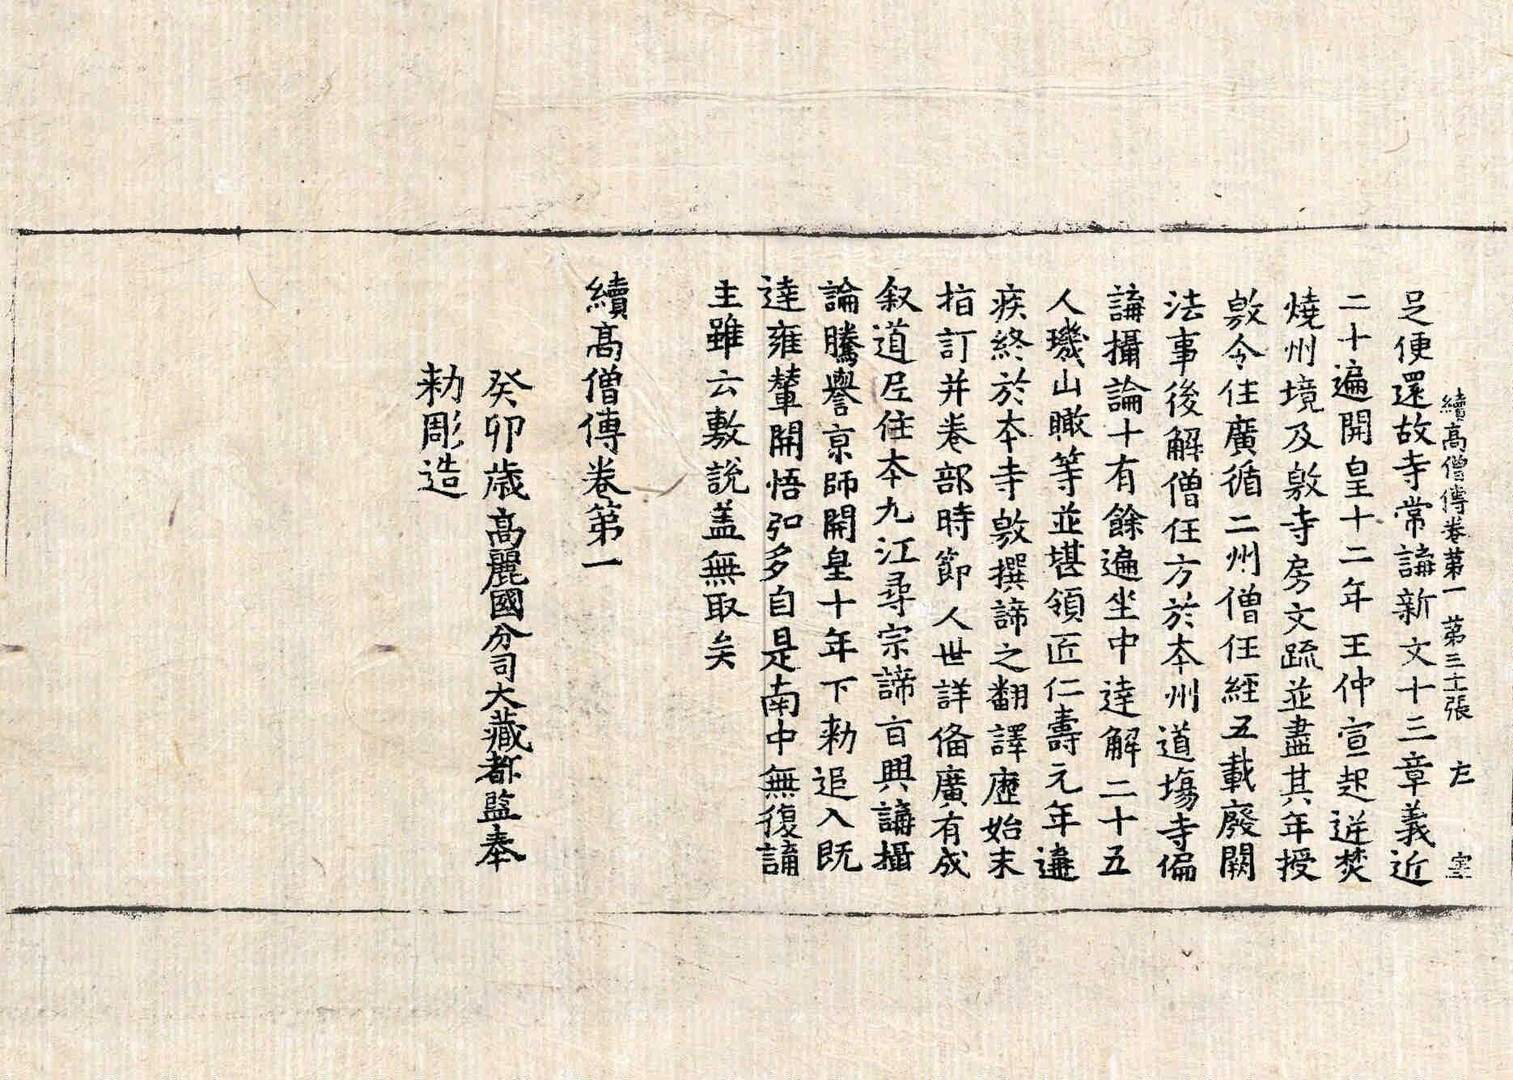 續高僧傳卷第一 第三十張 左
足便還故寺常講新文十三章義近
二十遍開皇十二年王仲宣起逆焚
燒州境及敫寺房文疏並盡其年授
敫令住廣循二州僧任經五載廢闕
法事後解僧任方於本州道塲寺徧
講攝論十有餘遍坐中達解二十五
人璣山瞰等並堪領匠仁壽元年遘
疾終於本寺敫撰諦之翻譯歷始末
指訂并卷部時節人世詳俻廣有成
叙道尼住本九江尋宗諦旨興講攝
論騰譽京師開皇十年下勑追入既
達雍輦開悟弘多自是南中無復講
主雖云敷說盖無取矣
續高僧傳卷第一
癸卯歲高麗國分司大藏都監奉
勑彫造